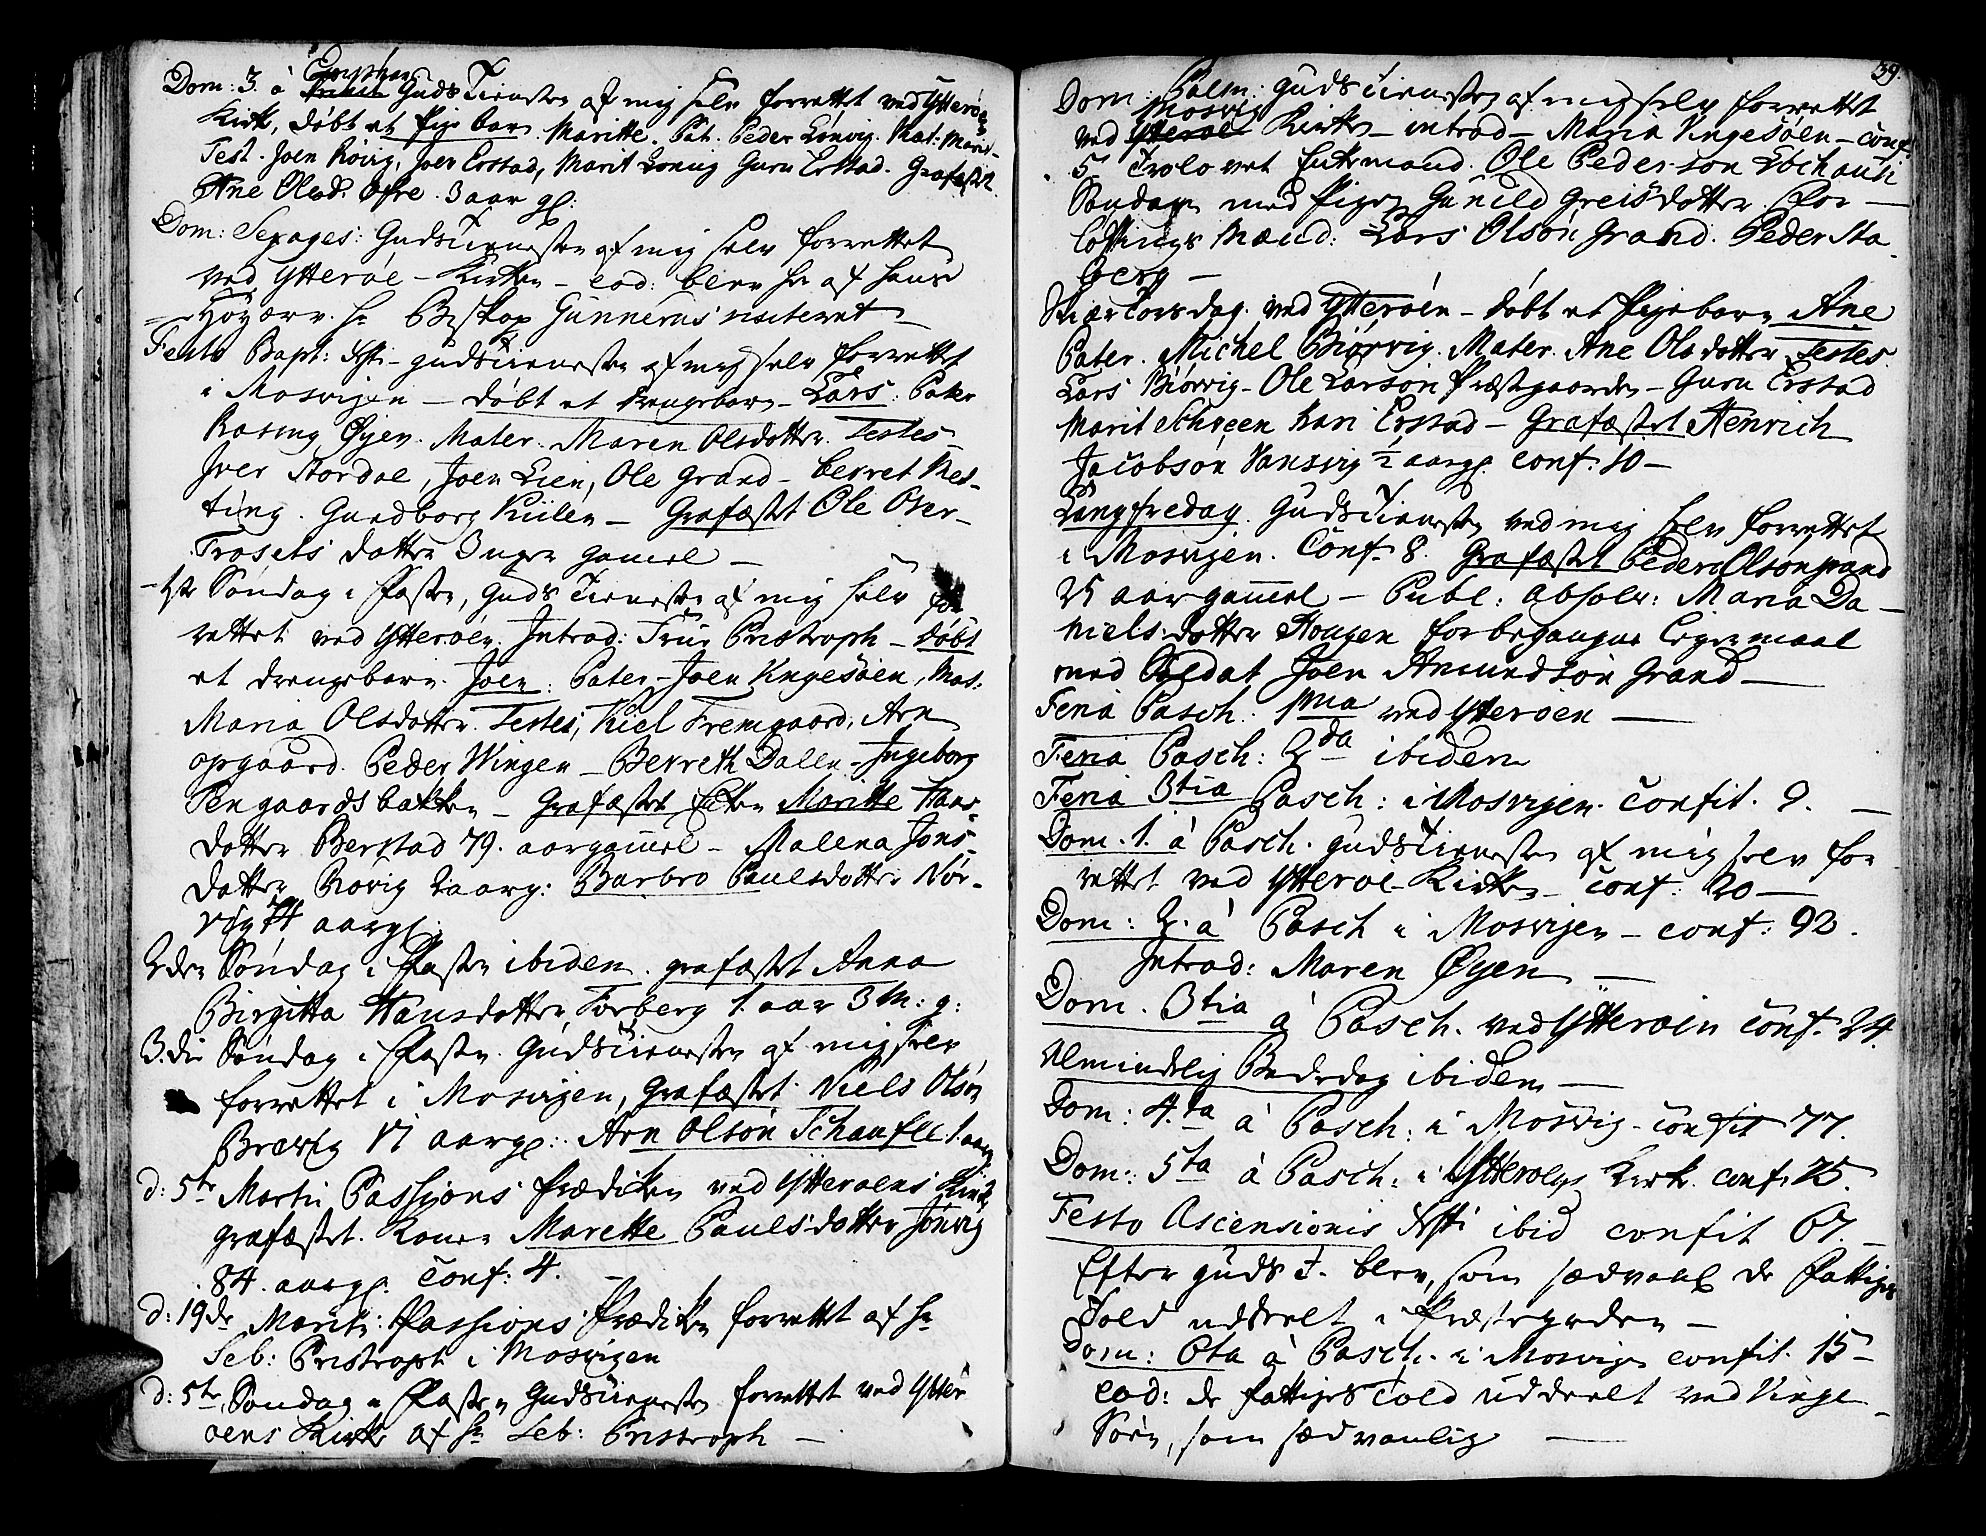 Dom: 3. à Epiphan Guds Tienesten af mig selv forrettet ved Ytterøens
Kirke, døbt et Pige barn Maritte. Pat. Peder Lønvig. Mat: Marit
Test. Joen Røvig, Joen Erstad, Marit Lønvig Guru Erstad. Grafæstet
Ane Olsd. Øfre 3 aar gl:
Dom: Sexages: Guds Tienesten af mig selv forrettet
ved Ytterøe - Kirken - eod: blev hr af hans
Høyærv. hr Biskop Gunnerus visiteret -
Festo Bapt: Xsti - guds tienesten af mig selv forrettet
i Mosvigen - døbt et drengebarn - Lars. Pater
Rasmg Øyen. Mater. Maren Olsdotter. Testes -
Iver Stordal, Joen Lien, Ole Grand - berret Mes-
ting. Gundborg Kiilen - Grafæstet Ole Over-
Trosets datter 3 uger gamel -
1ste Søndag i Fasten, Guds Tienesten af mig selv for
rettet ved Ytterøen. Introd: Frue Pristroph - døbt
et drengebarn. Joen. Pater - Joen Vingesøen, Mat:
Maria Olsdotter. Testes, Kiel Fremgaard, Arn
opgaard. Peder Wingen - Berreth Dalen - Ingeborg
Sengaardsbakken - Grafæstet Enken Maritte Hans-
dotter Berstad 79. aar gamel - Malena Jons-
datter Røvig 2 aar g: Barbro Paulsdotter Nør-
vig 74 aar gl.
2den Søndag i Fasten ibidem. grafæstet Anna
Birgitta Hansdotter Forberg 1. aar 3 M: g:
3.die Søndag i Fasten. Guds tienesten af mig selv
forrettet i Mosvigen, Grafæstet. Niels Olsøn
Brævig 17 aar gl: Arn Olsøn Schaufle 1. aar
d: 5te Martii Passions Prædiken ved Ytterøens Kirke
grafæstet. Konen Marette Paulsdotter Jønvig
84. aar gl. Conf: 4.
d: 19de Martii: Passions Prædiken forrettet af hr
Seb: Pristroph i Mosvigen
d: 5te Søndag i Fasten Guds tienesten forrettet ved Ytter
øens Kirke af hr Seb: Pristroph -
39.
Dom: Palm: Guds tienesten af mig selv forrettet
ved Mosvig Kirke - introd - Maria Vingesøen - conf:
5. Trolovet Enkemand. Ole Pedersøn Løchaus
Søndagen med Pigen Gunild Greisdotter. For -
lofnings Mænd: Lars Olsøn Grand. Peder Sta
berg -
Skiær Torsdag. ved Ytterøen - døbt et Pigebarn Ane
Pater. Michel Biørvig. Mater. Ane Olsdotter Testes.
Lars Biørvig - Ole Larsøn Præstgaarden - Guru Erstad
Marit Schreen Kari Erstad - Grafæstet Henrich
Jacobsøn Vansvig ½ aar gl. Conf: 10 -
Langfredag. Guds Tienesten ved mig selv forrettet
i Mosvigen. Conf. 8. Grafæstet Peder Olsøn grand
25 aar gamel - Publ: absolv: Maria Da -
niels dotter Stougen for begangne Leyermaal
med Soldat Joen Amundsøn Grand -
Feria Pasch. 1ma ved Ytterøen -
Feria Pasch: 2da ibidem
Feria 3tia Pasch: i Mosvigen. Confit. 9. -
Dom. 1. à Pasch. guds Tienesten af mig selv for
rettet ved Ytterøe - Kirke - conf: 20 -
Dom: 2. à Pasch i Mosvigen - conf: 92.
Introd: Maren Øyen -
Dom. 3tia à Pasch. ved Ytterøen conf. 24.
Almindelig Bededag ibidem -
Dom: 4.ta à Pasch: i Mosvig - confit 77.
Dom: 5ta à Pasch: i Ytterøens Kirke. conf. 25.
Festo Ascensionis Xsti ibid confit 67. -
Efter guds T. blev, som sædvanl de Fattiges
Told uddeelt i Præstegarden -
Dom: 6ta à Pasch. i Mosvigen confit. 15 -
eod: de fattiges told uddeelt ved Vinge -
Søen, som sædvanlig -